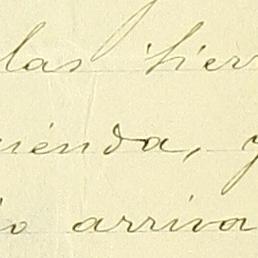 las tier
ienda, y
io arriva